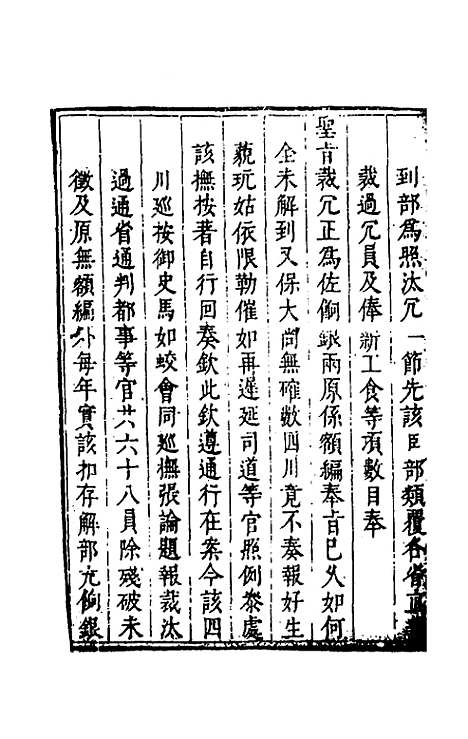 到部爲照汰冗一節先該臣部類覆各省直
裁過冗員及俸薪工食等項數目奉
聖旨裁冗正爲佐餉銀兩原係額編奉旨已久如何
全未解到又保大尚無確數四川竟不奏報好生
藐玩姑依限勒催如再遲延司道等官照例叅處
該撫按著自行回奏欽此欽遵通行在案今該四
川廵按御史馬如蛟會同廵撫張論題報裁汰
過通省通判都事等官共六十八員除殘破未
徵及原無額編外每年實該扣存解部充餉銀